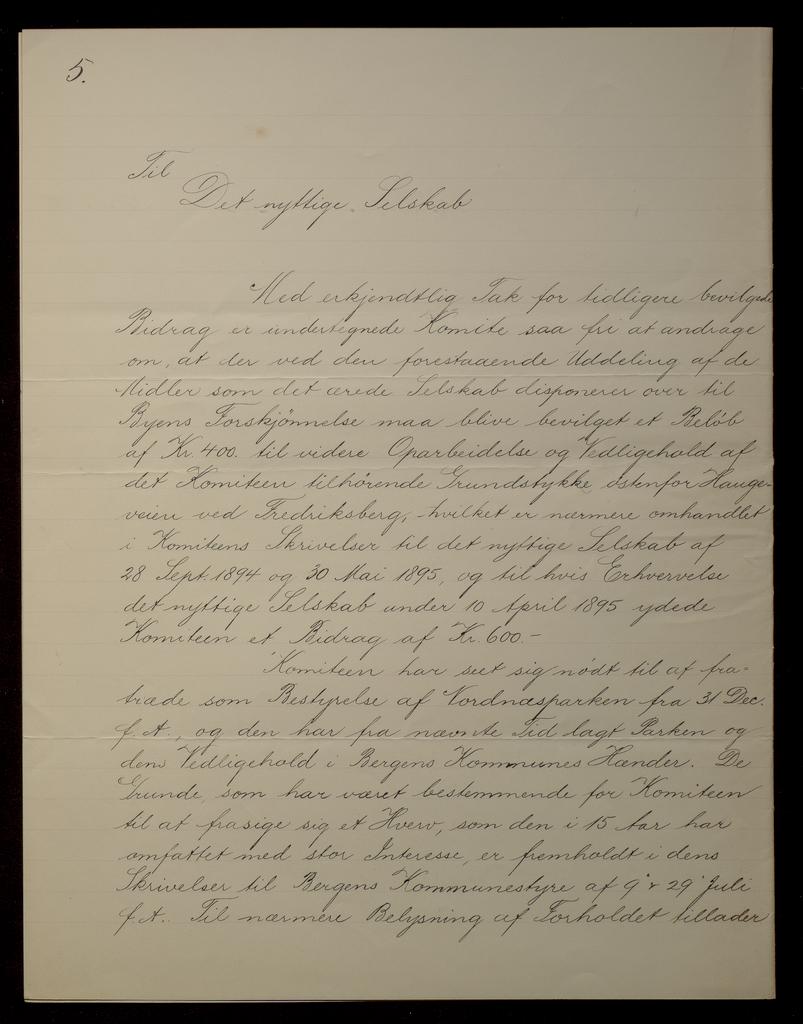 5.
Til
Det nyttige Selskab
Med erkjendtlig Tak for tidligere bevilgede
Bidrag er undertegnede Komite saa fri at andrage
om, at der ved den forestaaende Uddeling af de
Midler som det ærede Selskab disponerer over til
Byens Forskjønnelse maa blive bevilget et Beløb
af Kr. 400. til videre Oparbeidelse og Vedligehold af
det Komiteen tilhørende Grundstykke østenfor Hauge-
veien ved Fredriksberg, hvilket er nærmere omhandlet
i Komiteens Skrivelser til det nyttige Selskab af
28 Sept. 1894 og 30 Mai 1895, og til hvis Erhvervelse
det nyttige Selskab under 10 April 1895 ydede
Komiteen et Bidrag af Kr. 600.-
Komiteen har seet sig nødt til at fra-
træde som Bestyrelse af Nordnæsparken fra 31 Dec.
f. A., og den har fra nævnte Tid lagt Parken og
dens Vedligehold i Bergens Kommunes Hænder. De
Grunde, som har været bestemmende for Komiteen
til at frasige sig et Hverv, som den i 15 Aar har
omfattet med stor Interesse, er fremholdt i dens
Skrivelser til Bergens Kommunestyre af 9' & 29' Juli
f. A.. Til nærmere Belysning af Forholdet tillader